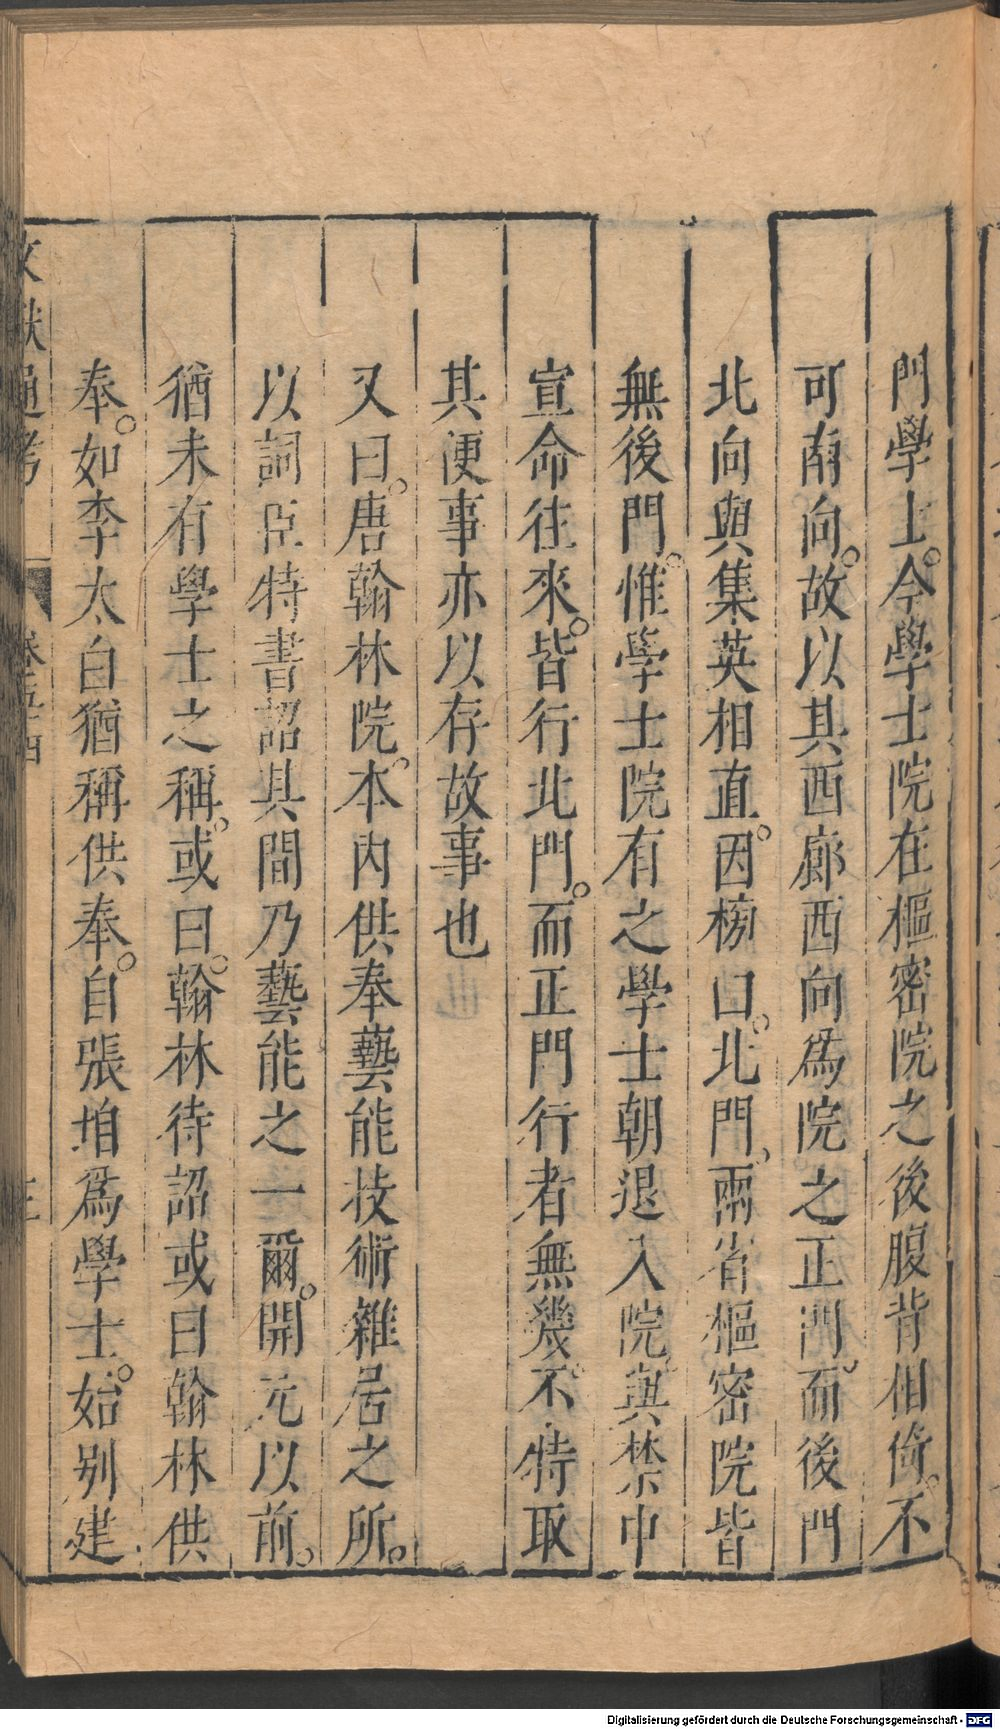 門學士。今學士院在樞密院之後腹背相倚。不
可南向。故以其西廊西向爲院之正門。而後門
北向與集英相直。因榜曰。北門、兩省樞密院皆
無後門。惟學士院有之學士朝退入院。與禁中
宣命往來。皆行北門。而正門行者無幾。不特取
其便事亦以存故事也
又曰。唐翰林院。本內供奉藝能技術雜居之所。
以詞臣特書詔其間乃藝能之一爾。開元以前。
猶未有學士之稱。或曰。翰林待詔或曰翰林供
奉。如李太白猶稱供奉。自張垍爲學士。始别建
文獻通考 卷五十四
Digitalisierung gefördert durch die Deutsche Forschungsgemeinschaft - DFG